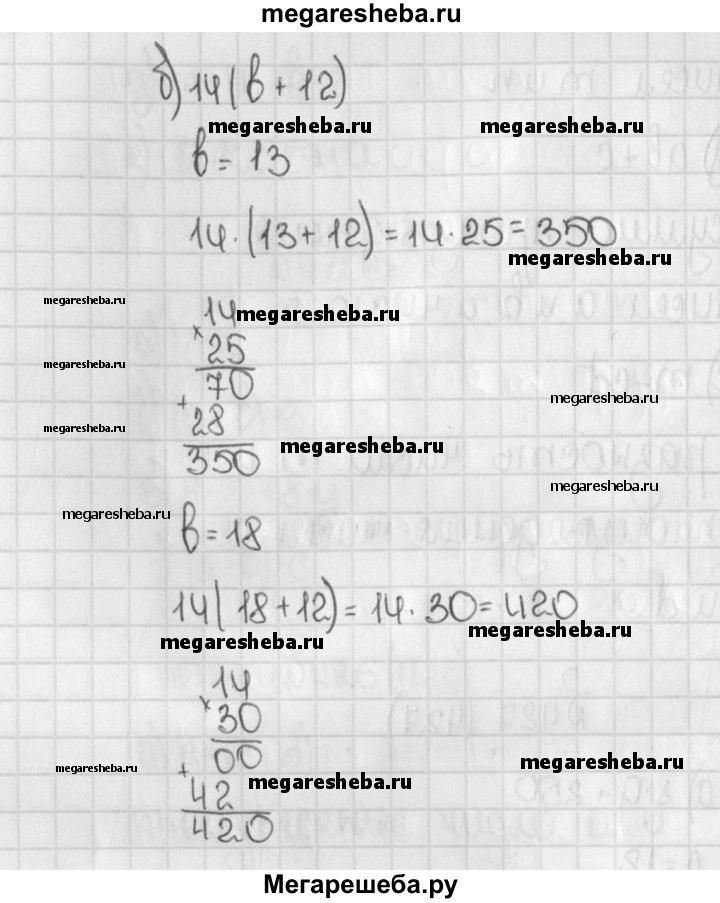 megaresheba.ru
б) 14(в + 12)
megaresheba.ru megaresheba.ru
в = 13
14·(13 + 12) = 14·25 = 350
megaresheba.ru
megaresheba.ru 14 megaresheba.ru
× 25
megaresheba.ru 70
megaresheba.ru
+ 28
megaresheba.ru megaresheba.ru
350
megaresheba.ru
megaresheba.ru в = 18
14( 18 + 12) = 14·30 = 420
megaresheba.ru megaresheba.ru
14
× 30
00
megaresheba.ru megaresheba.ru
+ 42 megaresheba.ru
420
Мегарешеба.ру